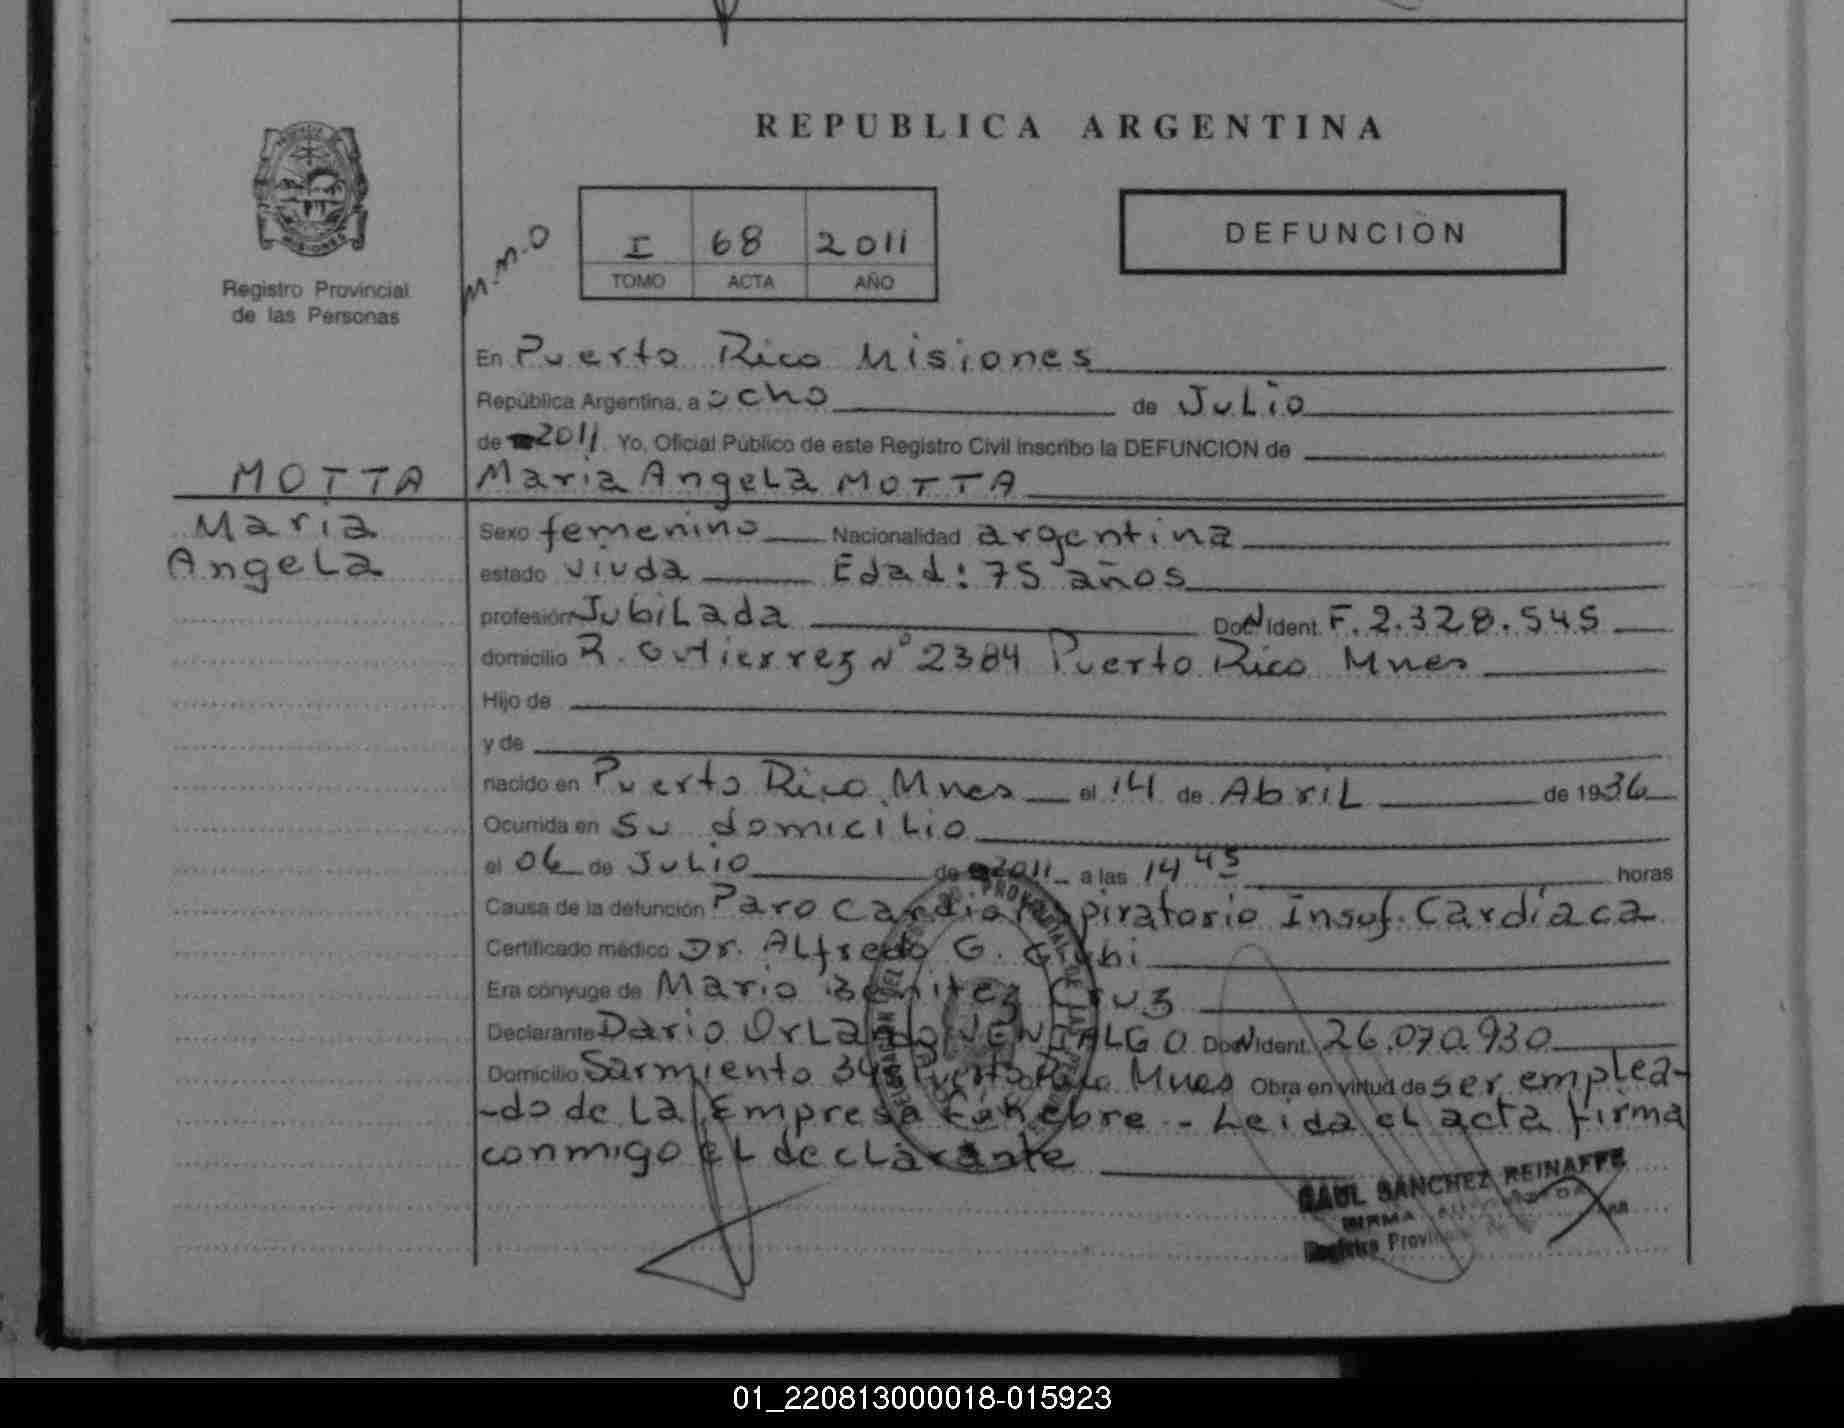 REPUBLICA ARGENTINA
Registro Provincial
de las Personas
M.M.O
I 68 2011
TOMO ACTA AÑO
DEFUNCIÓN
En Puerto Rico Misiones
República Argentina, a ocho de Julio
de 2011 Yo, Oficial Público de este Registro Civil inscribo la DEFUNCION de
MOTTA
Maria
Angela
Maria Angela MOTTA
Sexo femenino Nacionalidad argentina
estado viuda Edad: 75 años
profesión Jubilada Doc N Ident. F. 2.328.545
domicilio R. Gutierrez N° 2384 Puerto Rico Mnes
Hijo de
y de
nacido en Puerto Rico Mnes el 14 de Abril de 1936
Ocurrida en su domicilio
el 06 de Julio de 2011 a las 14 45 horas
Causa de la defunción Paro Cardiorespiratorio Insuf. Cardíaca
Certificado médico Dr. Alfredo G.
Era cónyuge de Mario Benitez Cruz
Declarante Dario Orlando Doc N Ident. 26.070.930
Domicilio Sarmiento Puerto Rico Mnes Obra en virtud de ser emplea-
-do de la Empresa Fúnebre - Leida el acta firma
conmigo el declarante
RAUL SANCHEZ REINAFFE
FIRMA
Registro
01_220813000018-015923